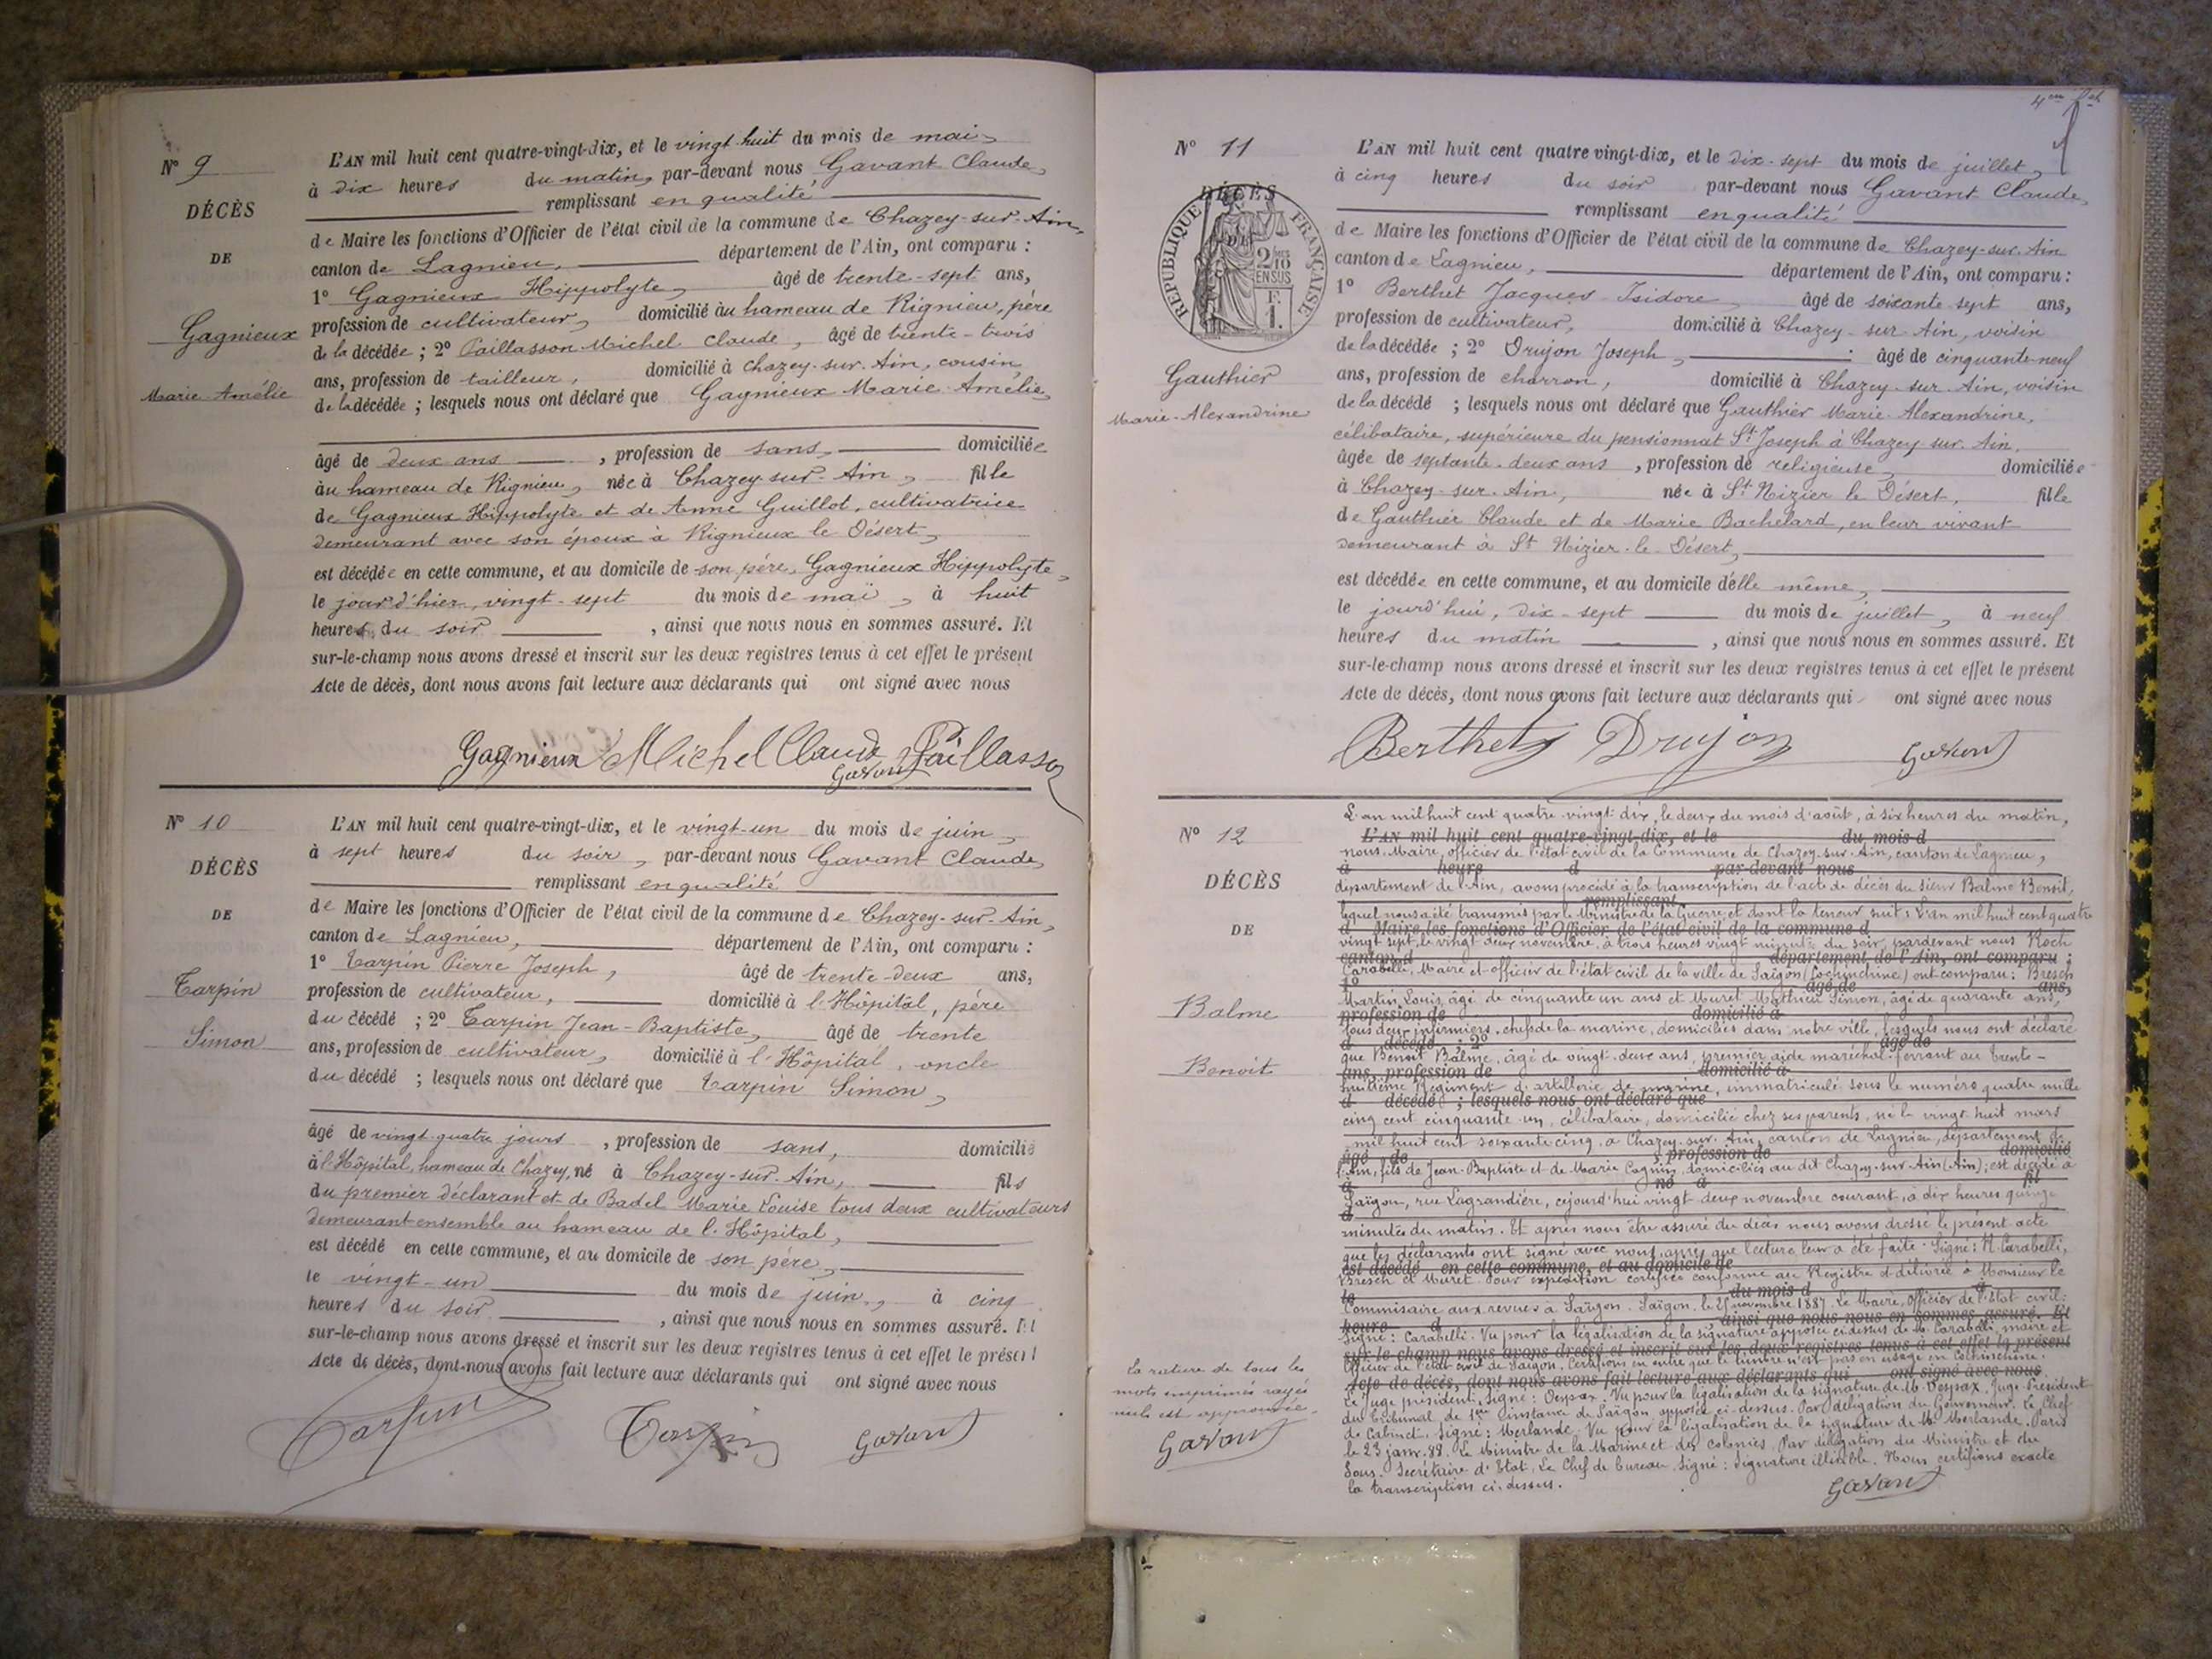 N° 9
DÉCÈS
DE
Gagnieux
Marie-Amélie
L'AN mil huit cent quatre-vingt-dix, et le vingt-huit du mois de mai,
à dix heures du matin, par-devant nous Gavant Claude,
remplissant en qualité
de Maire les fonctions d'Officier de l'état civil de la commune de Chazey-sur-Ain,
canton de Lagnieu, département de l'Ain, ont comparu :
1° Gagnieux Hippolyte, âgé de trente-sept ans,
profession de cultivateur, domicilié au hameau de Rignieu, père
de la décédée ; 2° Paillasson Michel Claude, âgé de trente-trois
ans, profession de tailleur, domicilié à Chazey-sur-Ain, cousin
de la décédée ; lesquels nous ont déclaré que Gagnieux Marie Amélie,
âgé de deux ans, profession de sans, domiciliée
au hameau de Rignieu, née à Chazey-sur-Ain, fille
de Gagnieux Hippolyte et de Anne Guillot, cultivatrice
demeurant avec son époux à Rignieux le Désert,
est décédée en cette commune, et au domicile de son père, Gagnieux Hippolyte,
le jour d'hier, vingt-sept du mois de mai, à huit
heures du soir, ainsi que nous nous en sommes assuré. Et
sur-le-champ nous avons dressé et inscrit sur les deux registres tenus à cet effet le présent
Acte de décès, dont nous avons fait lecture aux déclarants qui ont signé avec nous
Gagnieux Michel Claude Paillasson
Gavant
N° 10
DÉCÈS
DE
Tarpin
Simon
L'AN mil huit cent quatre-vingt-dix, et le vingt-un du mois de juin,
à sept heures du soir, par-devant nous Gavant Claude,
remplissant en qualité
de Maire les fonctions d'Officier de l'état civil de la commune de Chazey-sur-Ain,
canton de Lagnieu, département de l'Ain, ont comparu :
1° Tarpin Pierre Joseph, âgé de trente-deux ans,
profession de cultivateur, domicilié à l'Hôpital, père
du décédé ; 2° Tarpin Jean-Baptiste, âgé de trente
ans, profession de cultivateur, domicilié à l'Hôpital, oncle
du décédé ; lesquels nous ont déclaré que Tarpin Simon,
âgé de vingt-quatre jours, profession de sans, domicilié
à l'Hôpital, hameau de Chazey, né à Chazey-sur-Ain, fils
du premier déclarant et de Badel Marie Louise tous deux cultivateurs
demeurant ensemble au hameau de l'Hôpital,
est décédé en cette commune, et au domicile de son père,
le vingt-un du mois de juin, à cinq
heures du soir, ainsi que nous nous en sommes assuré. Et
sur-le-champ nous avons dressé et inscrit sur les deux registres tenus à cet effet le présent
Acte de décès, dont nous avons fait lecture aux déclarants qui ont signé avec nous
Tarpin Tarpin Gavant
N° 11
DÉCÈS
DE
RÉPUBLIQUE FRANÇAISE
2/10 EN SUS
F. 1.
Gauthier
Marie-Alexandrine
L'AN mil huit cent quatre vingt-dix, et le dix-sept du mois de juillet,
à cinq heures du soir par-devant nous Gavant Claude,
remplissant en qualité
de Maire les fonctions d'Officier de l'état civil de la commune de Chazey-sur-Ain
canton de Lagnieu, département de l'Ain, ont comparu :
1° Berthet Jacques Isidore, âgé de soixante-sept ans,
profession de cultivateur, domicilié à Chazey-sur-Ain, voisin
de la décédée ; 2° Drujon Joseph, âgé de cinquante-neuf
ans, profession de charron, domicilié à Chazey-sur-Ain, voisin
de la décédé ; lesquels nous ont déclaré que Gauthier Marie-Alexandrine,
célibataire, supérieure du pensionnat St Joseph à Chazey-sur-Ain,
âgée de septante-deux ans, profession de religieuse, domiciliée
à Chazey-sur-Ain, née à St Nizier le Désert, fille
de Gauthier Claude et de Marie Bachelard, en leur vivant
demeurant à St Nizier-le-Désert,
est décédée en cette commune, et au domicile d'elle même,
le jourd'hui, dix-sept du mois de juillet, à neuf
heures du matin, ainsi que nous nous en sommes assuré. Et
sur-le-champ nous avons dressé et inscrit sur les deux registres tenus à cet effet le présent
Acte de décès, dont nous avons fait lecture aux déclarants qui ont signé avec nous
Berthet Drujon Gavant
N° 12
DÉCÈS
DE
Balme
Benoit
L'an mil huit cent quatre-vingt-dix, le deux du mois d'août, à six heures du matin,
L'AN mil huit cent quatre-vingt-dix, et le du mois d
nous, Maire, officier de l'état civil de la Commune de Chazey-sur-Ain, canton de Lagnieu,
à heure d par-devant nous
département de l'Ain, avons procédé à la transcription de l'acte de décès du sieur Balme Benoit,
remplissant
lequel nous a été transmis par le Ministre de la Guerre et dont la teneur suit : L'an mil huit cent quatre
d Maire les fonctions d'Officier de l'état civil de la commune d
vingt sept, le vingt deux novembre, à trois heures vingt minutes du soir, pardevant nous Roch
canton d département de l'Ain, ont comparu :
Carabelli, Maire et officier de l'état civil de la ville de Saïgon (Cochinchine) ont comparu : Bresch
1° âgé de ans,
Martin Louis, âgé de cinquante un ans et Muret Mathieu Simon, âgé de quarante ans,
profession de domicilié à
tous deux infirmiers-chefs de la marine, domiciliés dans notre ville, lesquels nous ont déclaré
d décédé ; 2° âgé de
que Benoit Balme, âgé de vingt-deux ans, premier aide maréchal-ferrant au trente-
ans, profession de domicilié à
huitième Régiment d'artillerie de marine, immatriculé sous le numéro quatre mille
d décédé ; lesquels nous ont déclaré que
cinq cent cinquante-un, célibataire, domicilié chez ses parents, né le vingt-huit mars
mil huit cent soixante cinq, à Chazey-sur-Ain, canton de Lagnieu, département de
âgé de , profession de domicilié
l'Ain, fils de Jean-Baptiste et de Marie Cognin domiciliés au dit Chazey-sur-Ain (Ain); est décédé à
à né à fil
Saïgon, rue Lagrandière, cejourd'hui vingt-deux novembre courant, à dix heures quinze
d
minutes du matin. Et après nous être assuré du décès nous avons dressé le présent acte
que les déclarants ont signé avec nous, après que lecture leur a été faite. Signé : R. Carabelli,
est décédé en cette commune, et au domicile de
Bresch et Muret. Pour expédition certifiée conforme au Registre et délivrée à Monsieur le
le du mois d
Commissaire aux revues à Saïgon. Saïgon, le novembre 1887. Le Maire, Officier de l'Etat civil :
heure d ainsi que nous nous en sommes assuré. Et
signé : Carabelli. Vu pour la légalisation de la signature apposée ci-dessus de M. Carabelli, maire et
sur-le-champ nous avons dressé et inscrit sur les deux registres tenus à cet effet le présent
Officier de l'état civil de Saïgon. Certifions en outre que le timbre n'est pas en usage en Cochinchine.
Acte de décès, dont nous avons fait lecture aux déclarants qui ont signé avec nous
Le Juge président, signé : Vu pour la légalisation de la signature de M. Juge-Président
du Tribunal de 1ère instance de Saïgon apposée ci-dessus. Par délégation du Gouverneur. Le Chef
de Cabinet, Signé : Merlande. Vu pour la légalisation de la signature de M. Merlande. Paris
le 23 janv. 88. Le Ministre de la Marine et des colonies. Par délégation du Ministre et du
Sous-Secrétaire d'Etat, Le Chef de bureau, Signé : Signature illisible. Nous certifions exacte
la transcription ci-dessus.
Gavant
La rature de tous les
mots imprimés rayés
nuls est approuvée.
Gavant